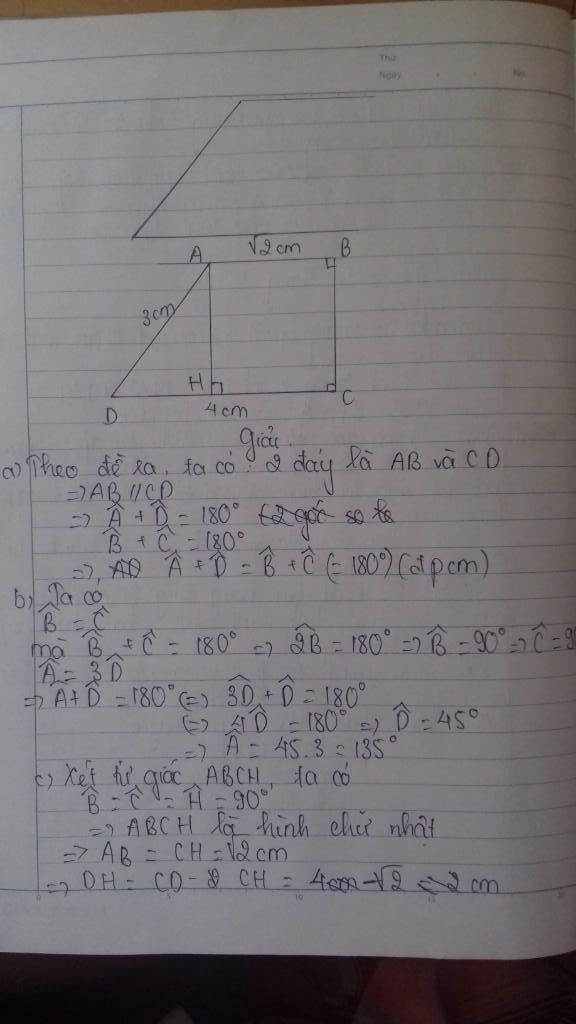 Thứ
Ngày
No.
A √2cm B
3cm
H
D 4cm C
Giải
a) Theo đề ra, ta có: 2 đáy là AB và CD
=> AB // CD
=> Â + D̂ = 180°
B̂ + Ĉ = 180°
=> Â + D̂ = B̂ + Ĉ (= 180°) (đpcm)
b) Ta có
B̂ = Ĉ
mà B̂ + Ĉ = 180° => 2B̂ = 180° => B̂ = 90° => Ĉ = 9
Â = 3D̂
=> Â + D̂ = 180° (=) 3D̂ + D̂ = 180°
(=) 4D̂ = 180° => D̂ = 45°
=> Â = 45.3 = 135°
c) Xét tứ giác ABCH, ta có
B̂ = Ĉ = Ĥ = 90°
=> ABCH là hình chữ nhật
=> AB = CH = √2 cm
=> DH = CD - CH = 4 - √2 cm